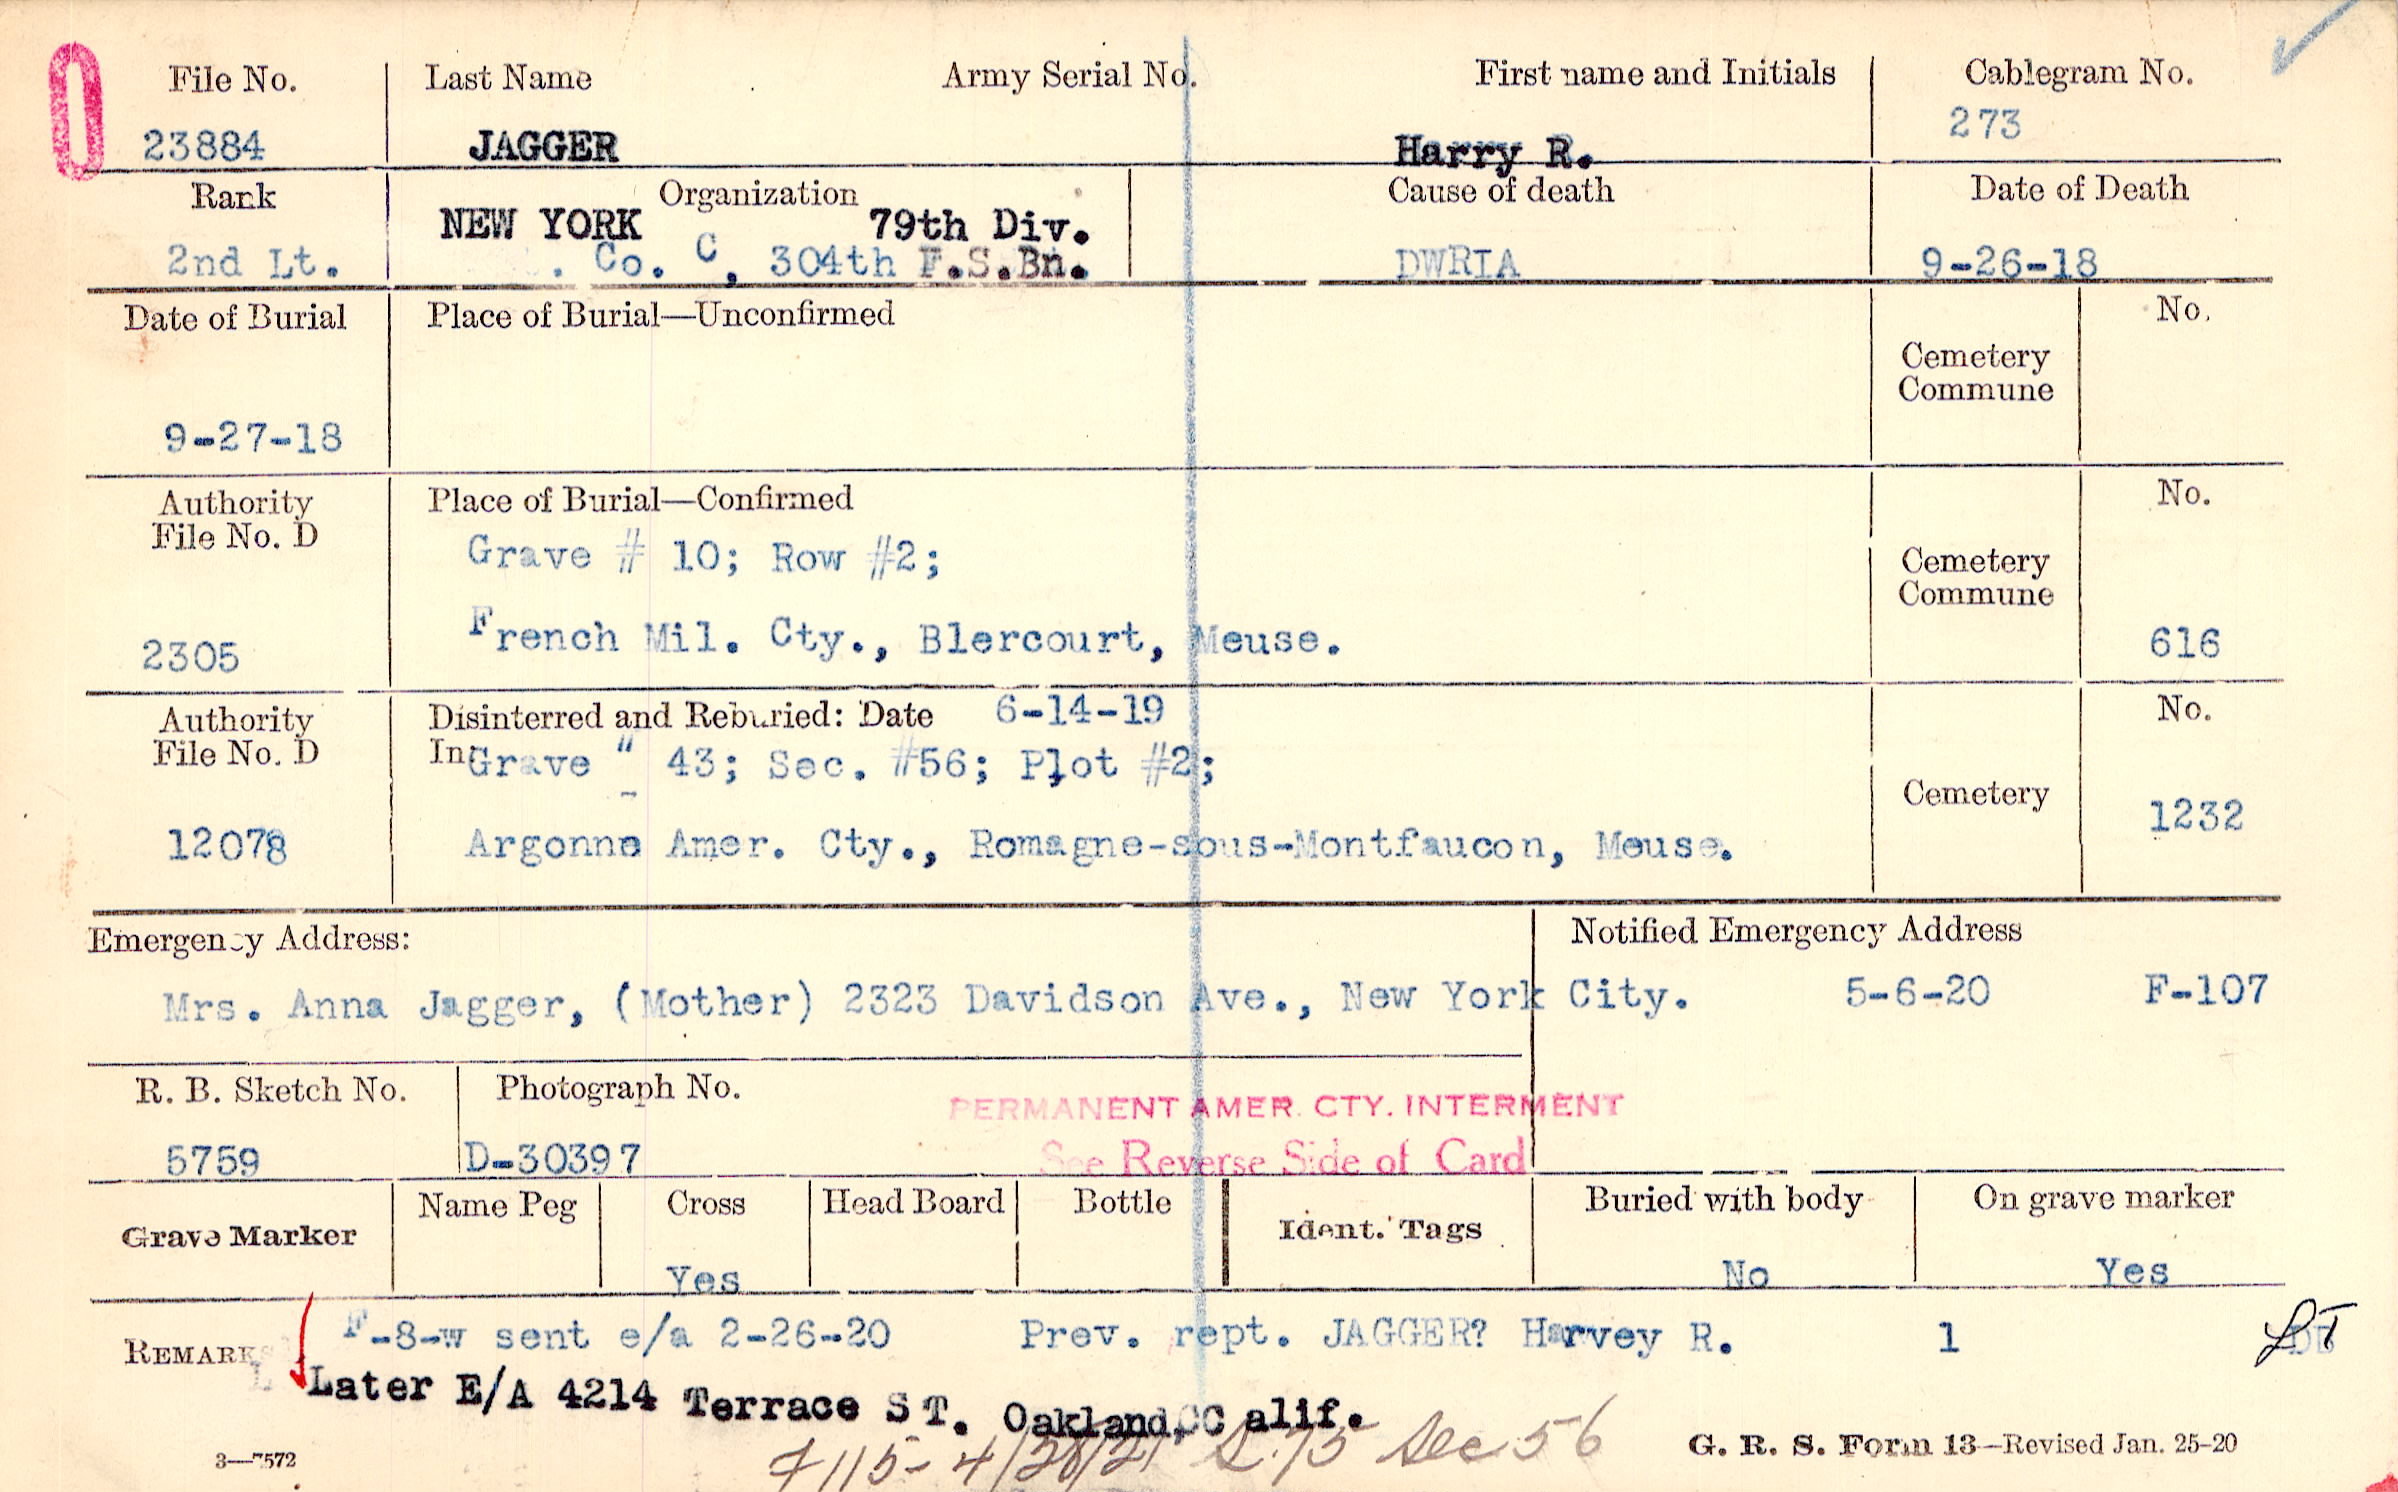 File No. Last Name Army Serial No. First name and Initials Cablegram No.
23884 JAGGER Harry R. 273
Rank Organization Cause of death Date of Death
NEW YORK 79th Div.
2nd Lt. . Co. C, 304th F.S.Bn. DWRIA 9-26-18
Date of Burial Place of Burial—Unconfirmed No.
Cemetery
Commune
9-27-18
Authority Place of Burial—Confirmed No.
File No. D
Grave # 10; Row #2;
Cemetery
Commune
2305 French Mil. Cty., Blercourt, Meuse. 616
Authority Disinterred and Reburied: Date 6-14-19 No.
File No. D In Grave " 43; Sec. #56; Plot #2;
Cemetery
12078 Argonne Amer. Cty., Romagne-sous-Montfaucon, Meuse. 1232
Emergency Address: Notified Emergency Address
Mrs. Anna Jagger, (Mother) 2323 Davidson Ave., New York City. 5-6-20 F-107
R. B. Sketch No. Photograph No.
PERMANENT AMER. CTY. INTERMENT
5759 D-30397 See Reverse Side of Card
Grave Marker Name Peg Cross Head Board Bottle Ident. Tags Buried with body On grave marker
Yes No Yes
REMARKS F-8-w sent e/a 2-26-20 Prev. rept. JAGGER? Harvey R. 1
Later E/A 4214 Terrace ST. Oakland,CC alif.
4/28/21 Sec 56
3—7572 G. R. S. Form 13—Revised Jan. 25-20